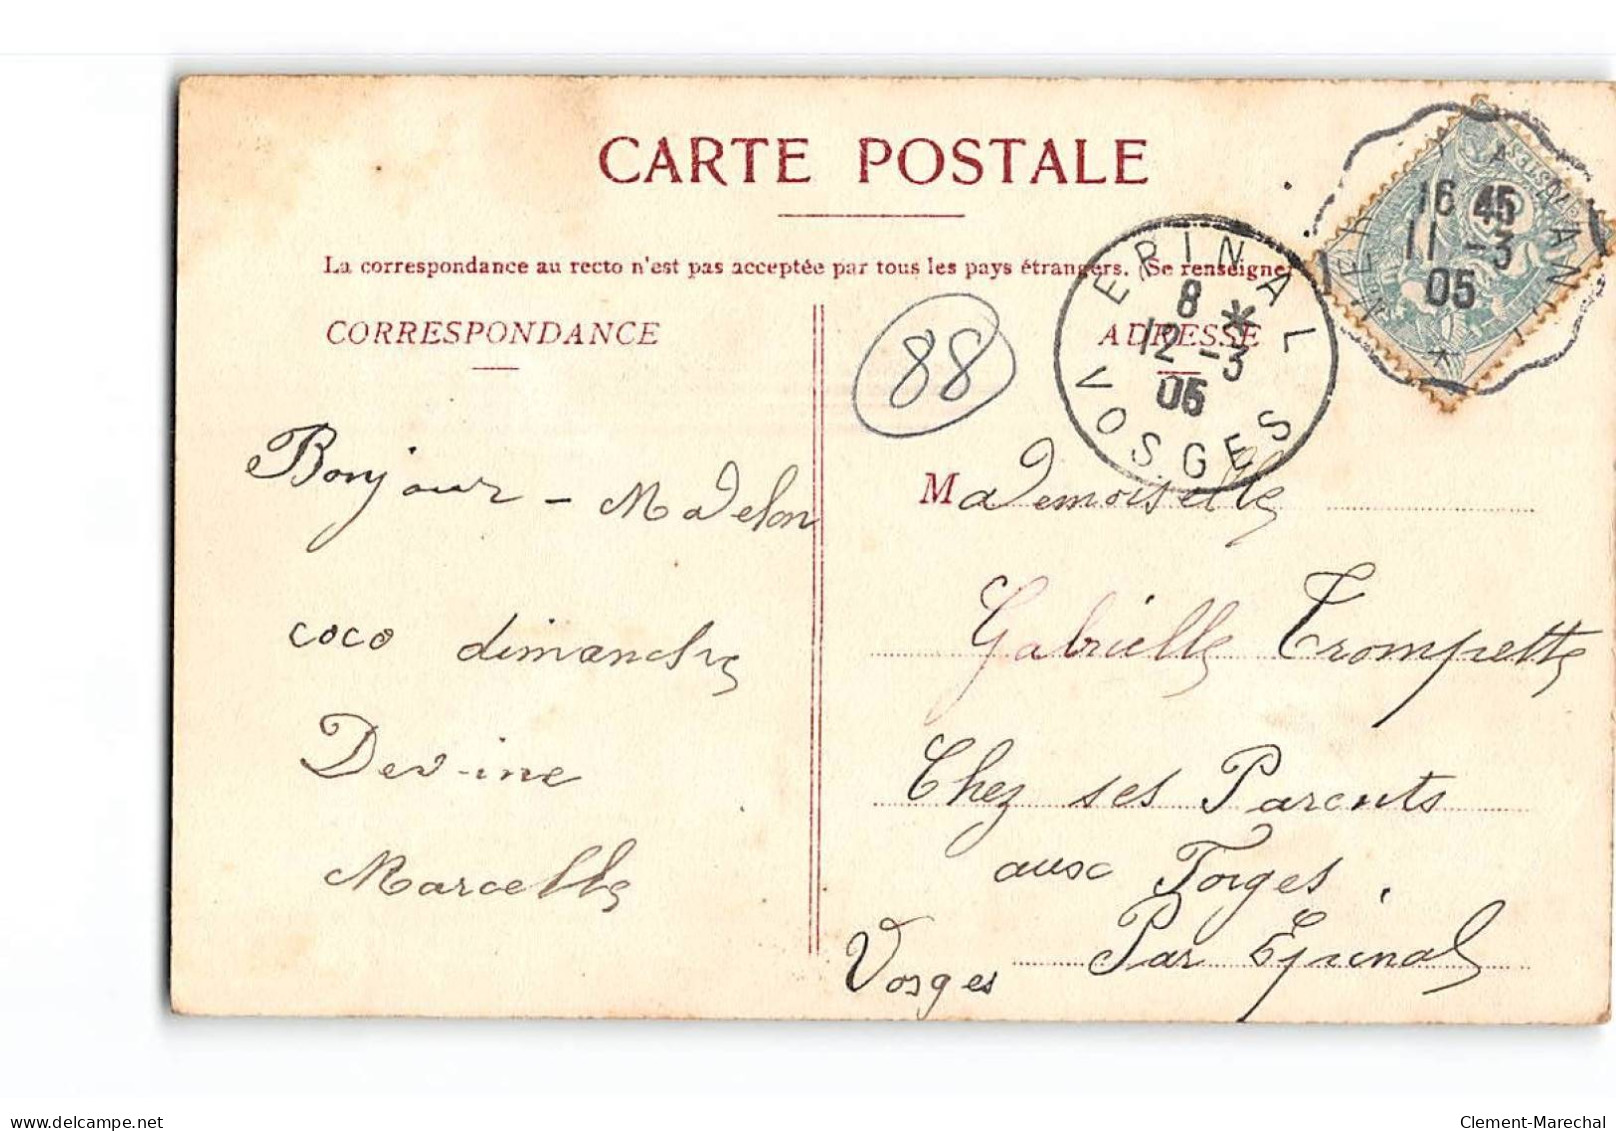 CARTE POSTALE
La correspondance au recto n'est pas acceptée par tous les pays étrangers. (Se renseigner
CORRESPONDANCE
ADRESSE
88
EPINAL
8 *
12 -3
05
VOSGES
16 45
11 -3
05
Bonjour - Madelon
coco dimanche
Devine
Marcelle
Mademoiselle
Gabrielle Trompette
Chez ses Parents
aux Forges
Par Epinal
Vosges
www.delcampe.net
Clement-Marechal